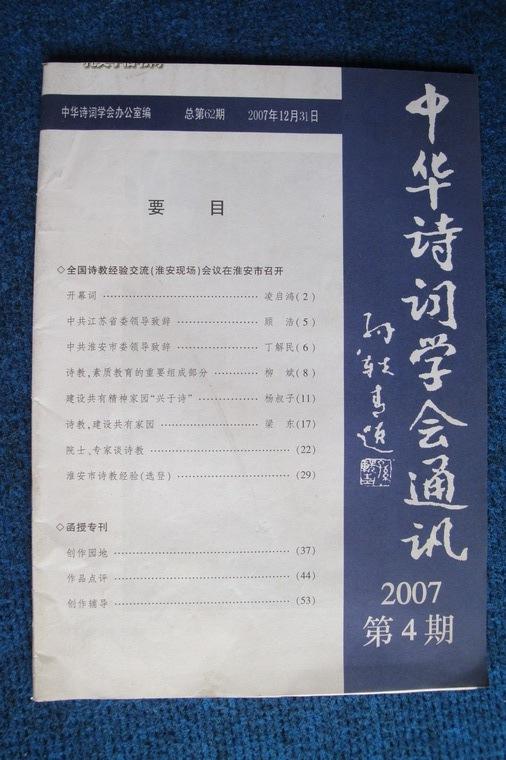 中华诗词学会办公室编 总第62期 2007年12月31日
要 目
◇全国诗教经验交流(淮安现场)会议在淮安市召开
开幕词 …………………… 凌启鸿(2)
中共江苏省委领导致辞 …………………… 顾 浩(5)
中共淮安市委领导致辞 …………………… 丁解民(6)
诗教,素质教育的重要组成部分 ………… 柳 斌(8)
建设共有精神家园“兴于诗” ………… 杨叔子(11)
诗教,建设共有家园 ………… 梁 东(17)
院士、专家谈诗教 …………………… (22)
淮安市诗教经验(选登) …………………… (29)
◇函授专刊
创作园地 …………………… (37)
作品点评 …………………… (44)
创作辅导 …………………… (53)
中华诗词学会通讯
孙轶青题
2007
第4期